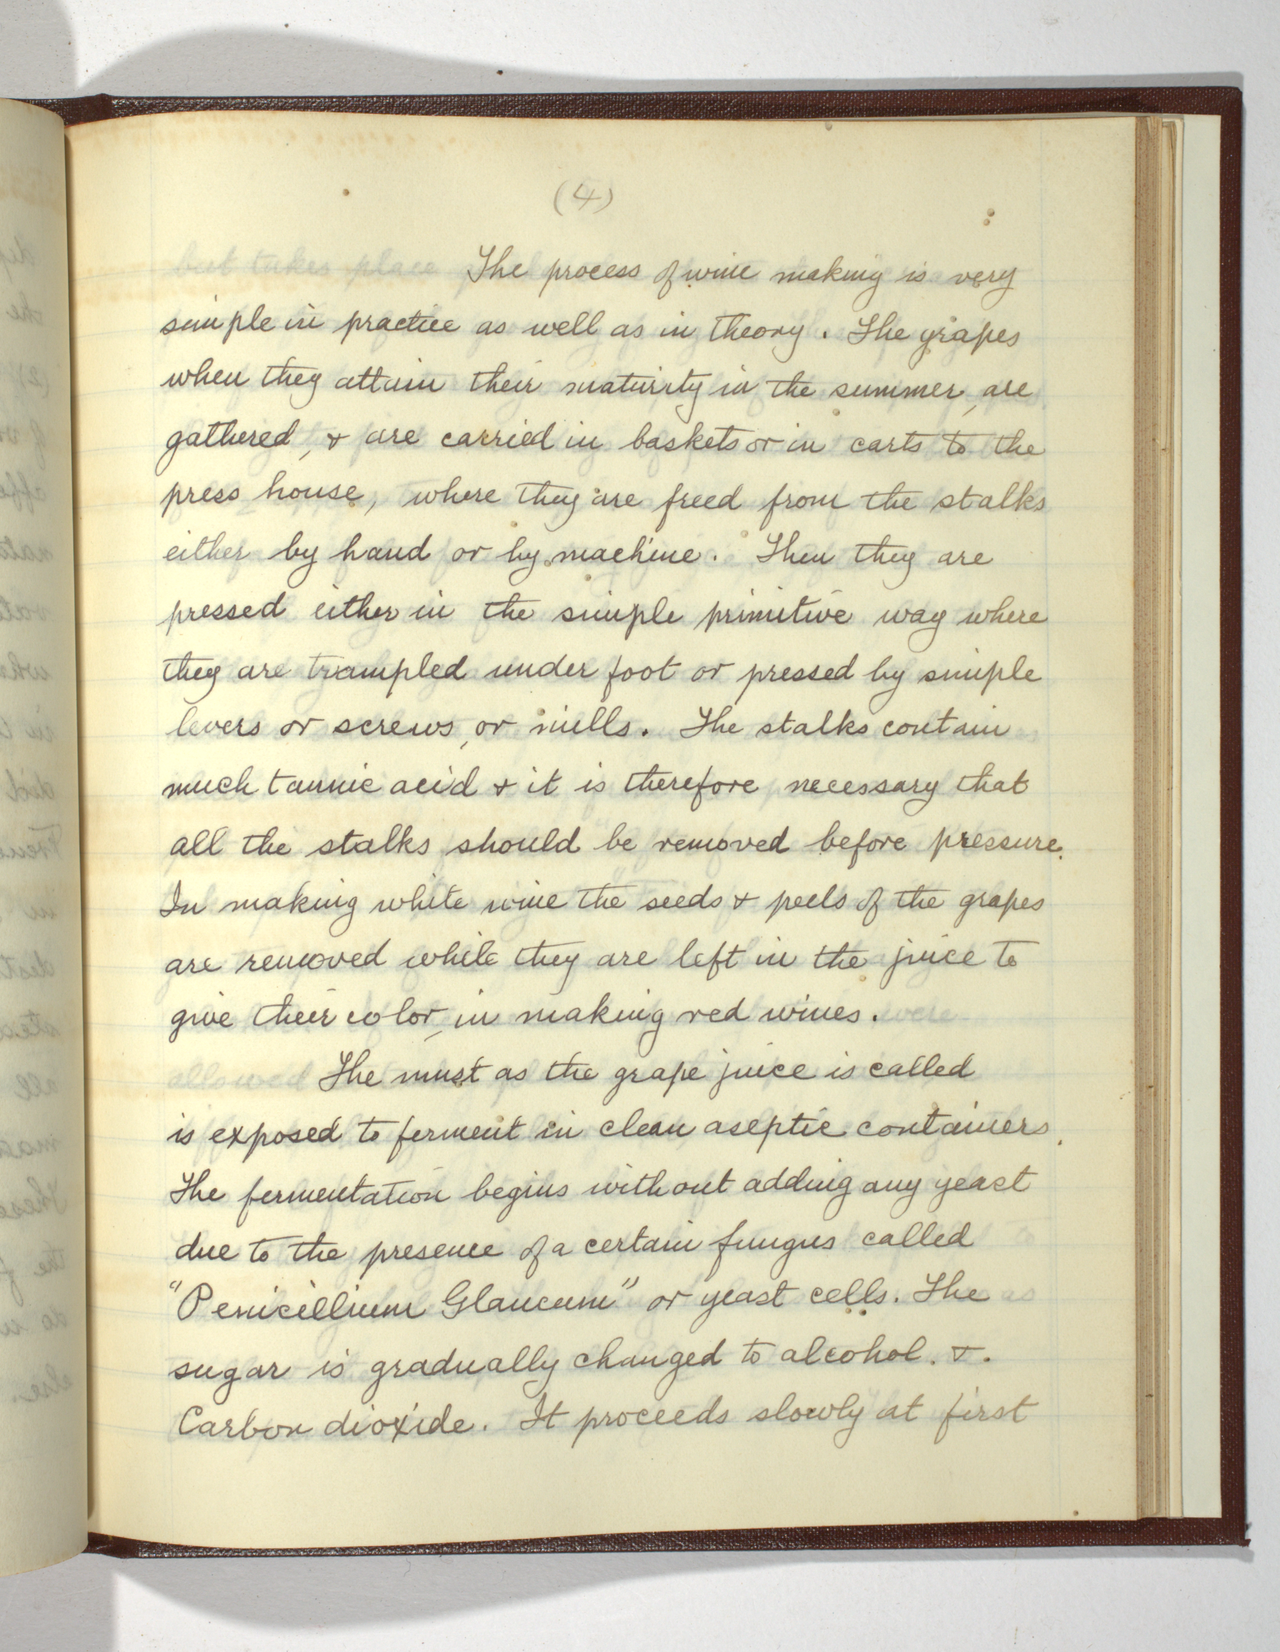 (4)
The process of wine making is very
simple in practice as well as in theory. The grapes
when they attain their maturity in the summer, are
gathered, & are carried in baskets or in carts to the
press house, where they are freed from the stalks
either by hand or by machine. Then they are
pressed either in the simple primitive way where
they are trampled under foot or pressed by simple
levers or screws, or mills. The stalks contain
much tannic acid & it is therefore necessary that
all the stalks should be removed before pressure.
In making white wine the seeds & peels of the grapes
are removed while they are left in the juice to
give their color, in making red wines.
The must as the grape juice is called
is exposed to ferment in clean aseptic containers.
The fermentation begins without adding any yeast
due to the presence of a certain fungus called
"Penicillium Glaucum" or yeast cells. The
sugar is gradually changed to alcohol. &.
Carbon dioxide. It proceeds slowly at first